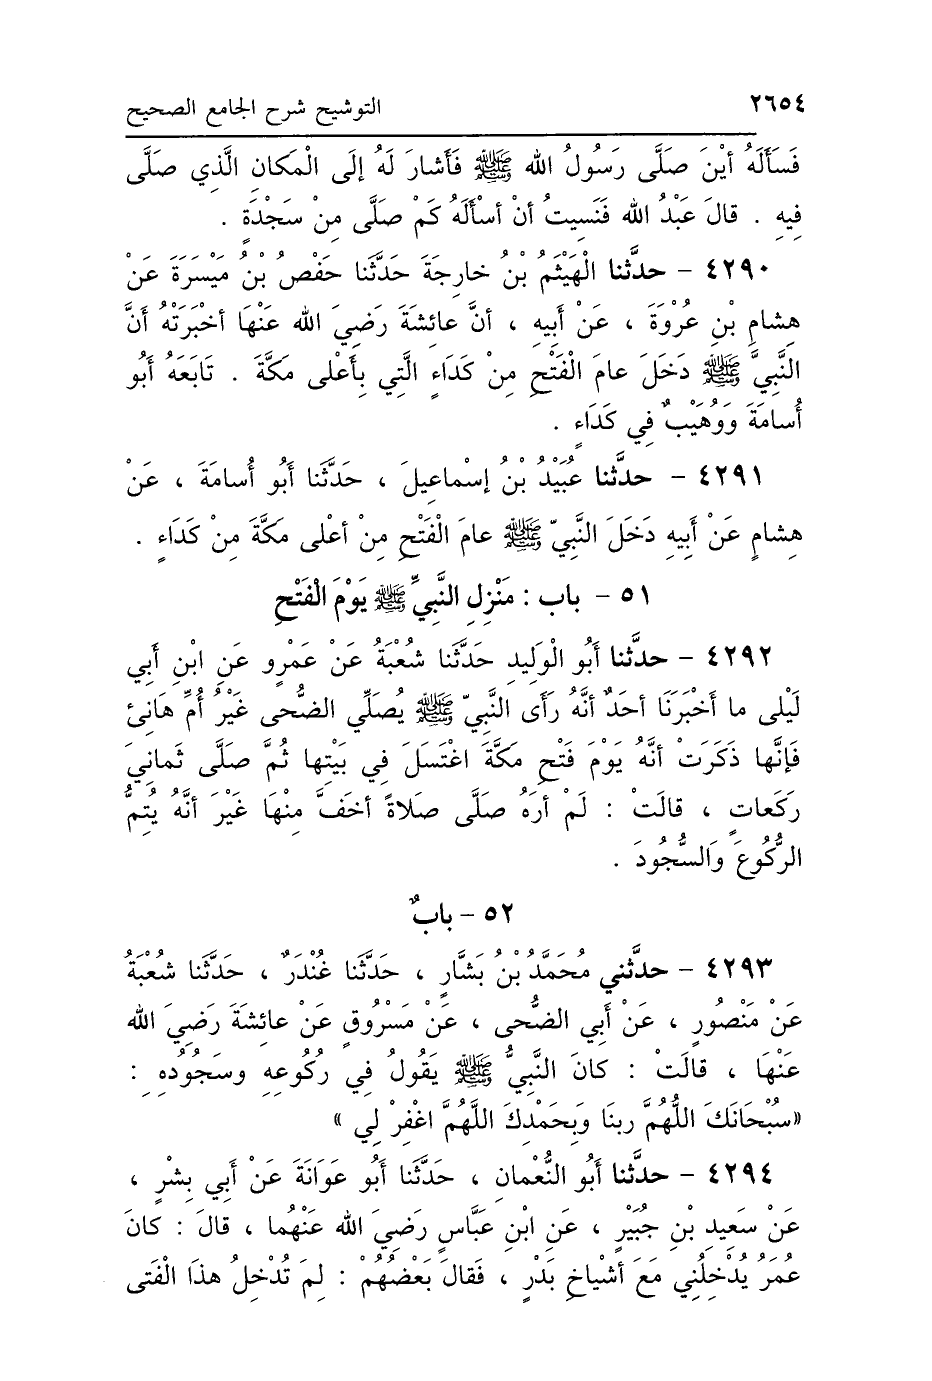 ٢٦٥٤ التوشيح شرح الجامع الصحيح
فَسَأَلَهُ أيْنَ صَلَّى رَسُولُ الله ﷺ فَأَشارَ لَهُ إلَى الْمَكانِ الَّذي صَلَّى
فِيهِ . قالَ عَبْدُ الله فَنَسِيتُ أنْ أسْأَلَهُ كَمْ صَلَّى مِنْ سَجْدَةٍ .
٤٢٩٠ - حدَّثنا الْهَيْثَمُ بْنُ خارِجَةَ حَدَّثَنا حَفْصُ بْنُ مَيْسَرَةَ عَنْ
هِشامِ بْنِ عُرْوَةَ ، عَنْ أبِيهِ ، أنَّ عائِشَةَ رَضِيَ الله عَنْهَا أخْبَرَتْهُ أنَّ
النَّبِيَّ ﷺ دَخَلَ عامَ الْفَتْحِ مِنْ كَدَاءٍ الَّتِي بِأَعْلى مَكَّةَ . تَابَعَهُ أبُو
أُسامَةَ وَوُهَيْبٌ فِي كَدَاءٍ .
٤٢٩١ - حدَّثنا عُبَيْدُ بْنُ إسْماعِيلَ ، حَدَّثَنا أبُو أُسامَةَ ، عَنْ
هِشامٍ عَنْ أبِيهِ دَخَلَ النَّبِيّ ﷺ عامَ الْفَتْحِ مِنْ أعْلى مَكَّةَ مِنْ كَدَاءٍ .
٥١ - باب : مَنْزِلِ النَّبيِّ ﷺ يَوْمَ الْفَتْحِ
٤٢٩٢ - حدَّثنا أبُو الْوَلِيدِ حَدَّثَنا شُعْبَةُ عَنْ عَمْرٍو عَنِ ابْنِ أبِي
لَيْلى ما أخْبَرَنَا أحَدٌ أنَّهُ رَأى النَّبِيّ ﷺ يُصَلِّي الضُّحى غَيْرُ أُمِّ هَانِئ
فَإنَّها ذَكَرَتْ أنَّهُ يَوْمَ فَتْحِ مَكَّةَ اغْتَسَلَ فِي بَيْتِها ثُمَّ صَلَّى ثَمانِيَ
رَكَعاتٍ ، قالَتْ : لَمْ أرَهُ صَلَّى صَلاةً أخَفَّ مِنْهَا غَيْرَ أنَّهُ يُتِمُّ
الرُّكُوعَ وَالسُّجُودَ .
٥٢ - بابٌ
٤٢٩٣ - حدَّثني مُحَمَّدُ بْنُ بَشَّارٍ ، حَدَّثَنا غُنْدَرٌ ، حَدَّثَنا شُعْبَةُ
عَنْ مَنْصُورٍ ، عَنْ أبِي الضُّحى ، عَنْ مَسْرُوقٍ عَنْ عائِشَةَ رَضِيَ الله
عَنْهَا ، قالَتْ : كانَ النَّبِيُّ ﷺ يَقُولُ فِي رُكُوعِهِ وسَجُودُهِ :
«سُبْحَانَكَ اللَّهُمَّ ربنَا وَبِحَمْدِكَ اللَّهُمَّ اغْفِرْ لِي »
٤٢٩٤ - حدَّثنا أبُو النُّعْمانِ ، حَدَّثَنا أبُو عَوَانَةَ عَنْ أبِي بِشْرٍ ،
عَنْ سَعِيدِ بْنِ جُبَيْرٍ ، عَنِ ابْنِ عَبَّاسٍ رَضِيَ الله عَنْهُما ، قالَ : كانَ
عُمَرُ يُدْخِلُنِي مَعَ أشْياخِ بَدْرٍ ، فَقالَ بَعْضُهُمْ : لِمَ تُدْخِلُ هذَا الْفَتى